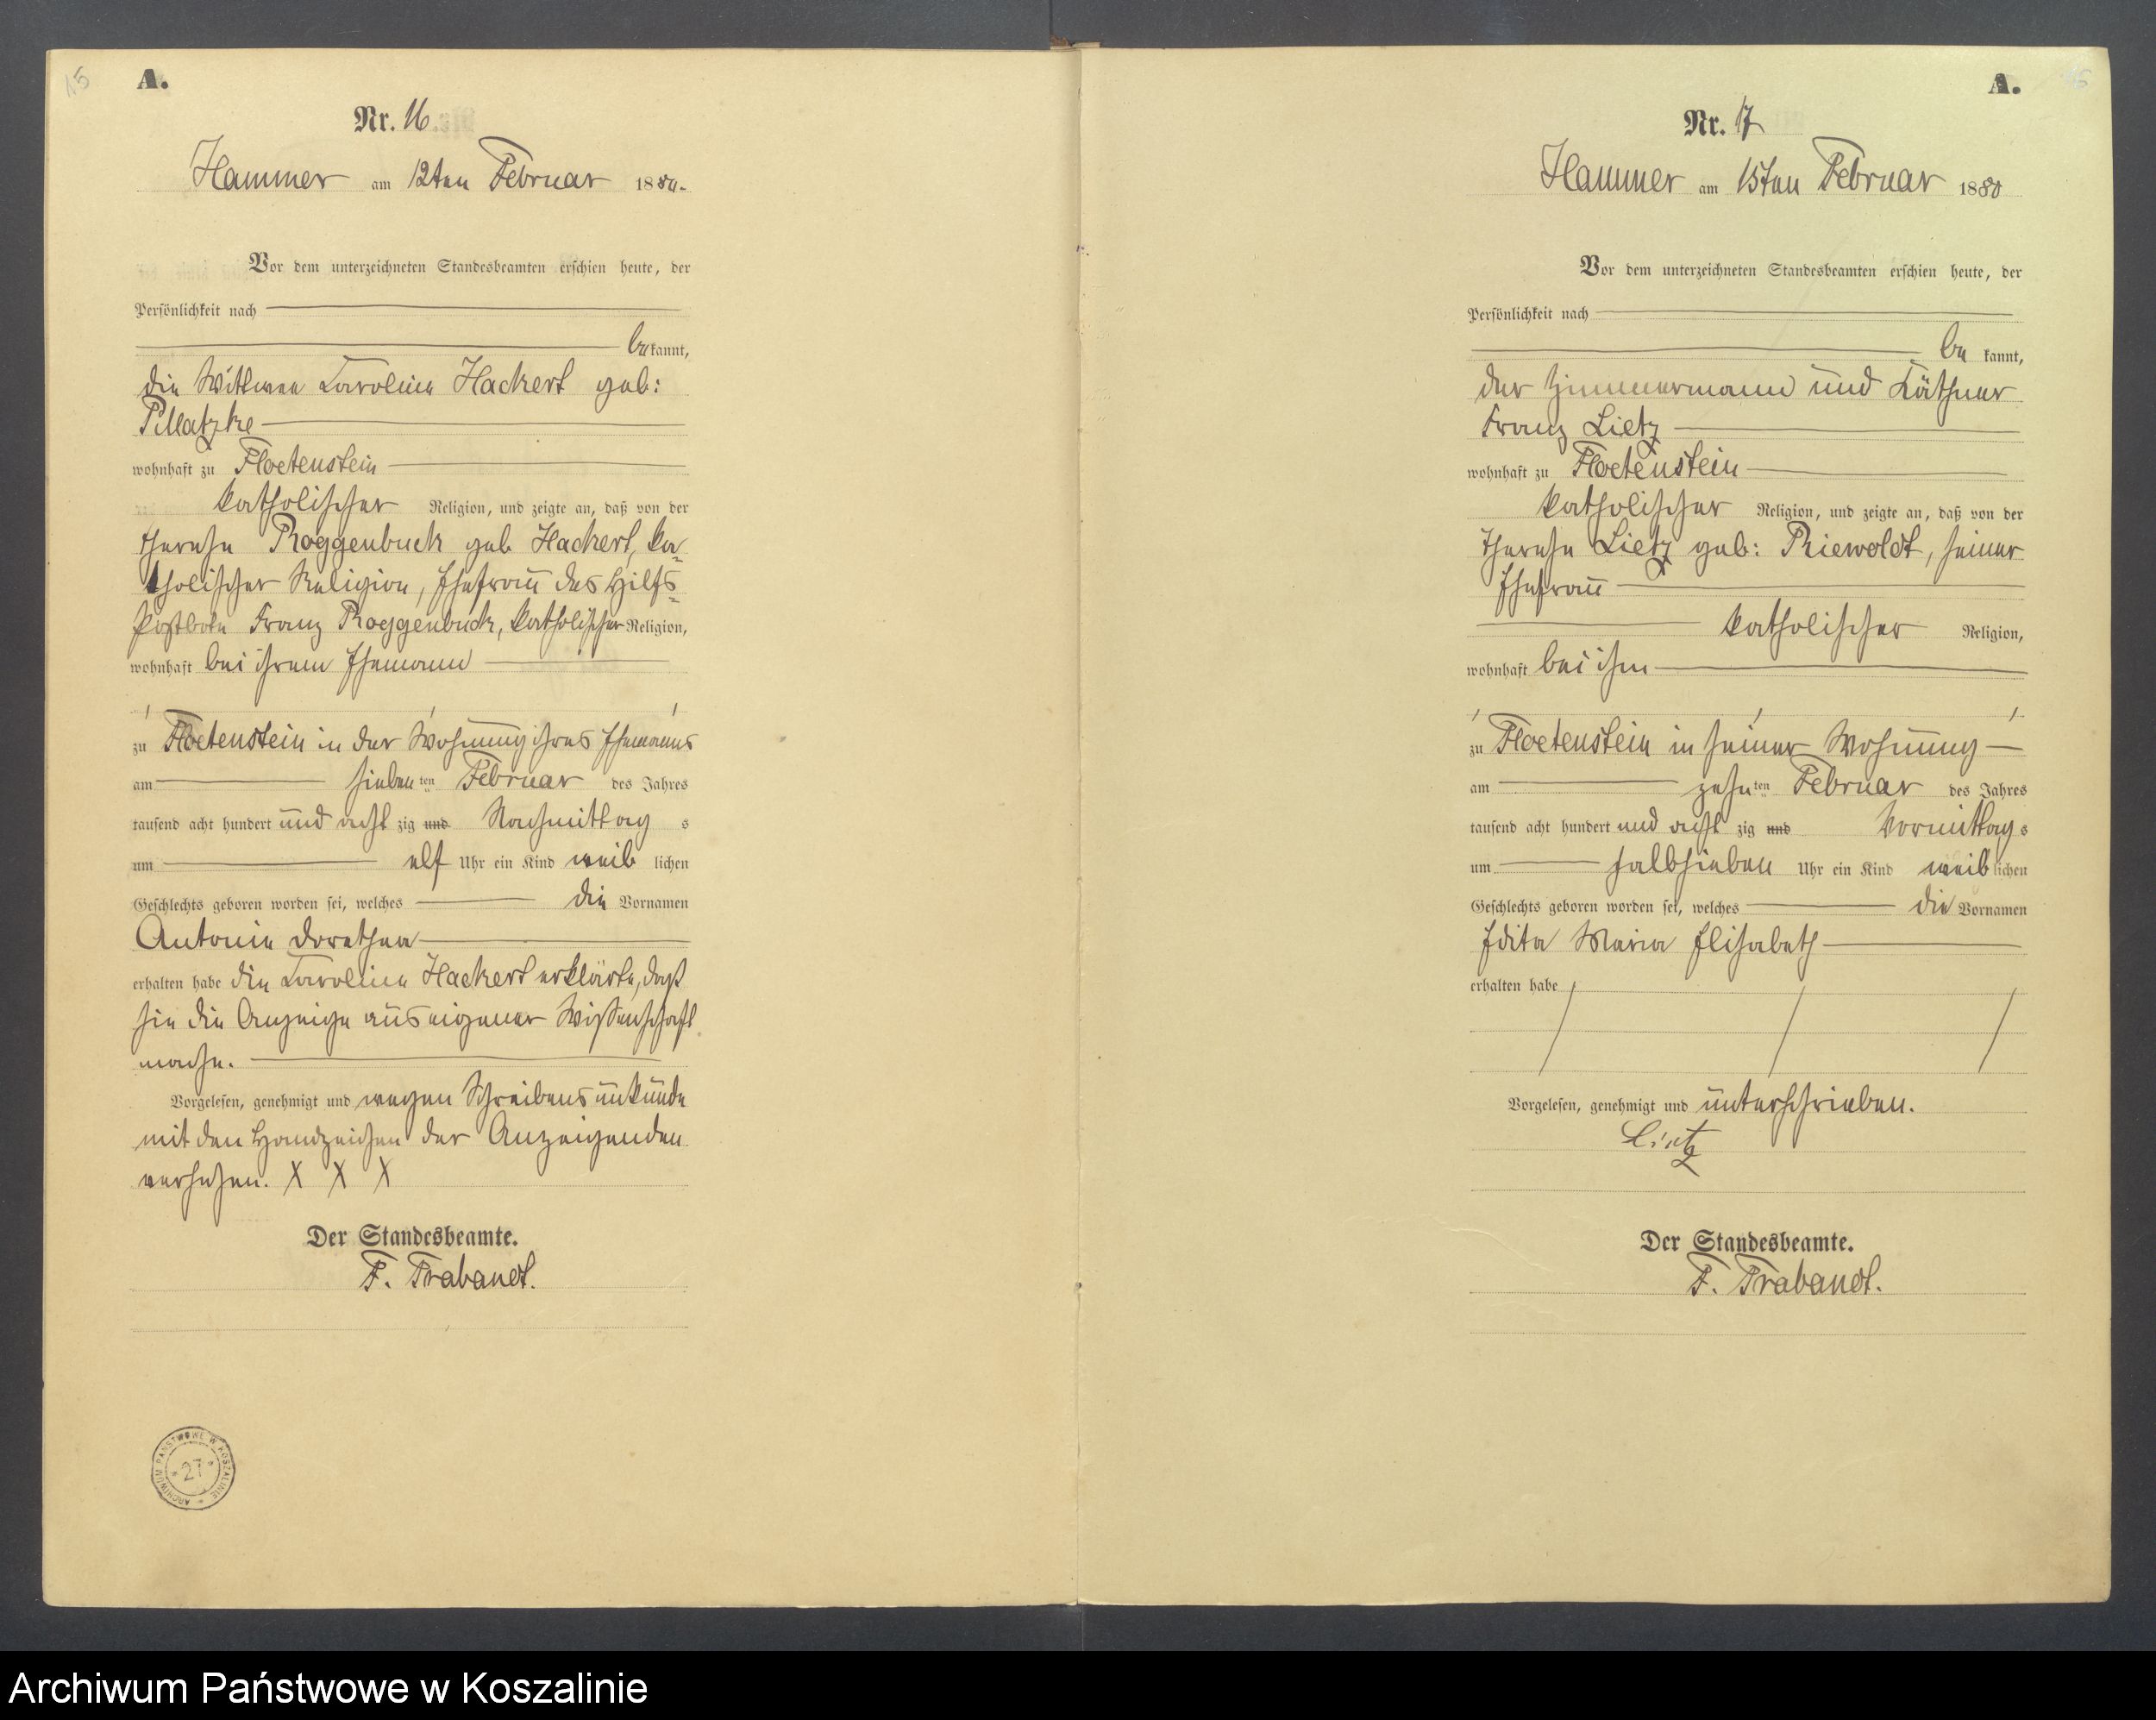 15
A.
Nr. 16.
Hammer am 12ten Februar 1880.
Vor dem unterzeichneten Standesbeamten erschien heute, der
Persönlichkeit nach
bekannt,
die Wittwee Caroline Hackert geb:
Pillatzke
wohnhaft zu Floetenstein
katholischer Religion, und zeigte an, daß von der
Therese Roggenbuck geb Hackert, ka-
tholischer Religion, Ehefrau des Hilfs-
postbote Franz Roggenbuck, katholischer Religion,
wohnhaft bei ihrem Ehemann
zu Floetenstein in der Wohnung ihres Ehemanns
am siebenten Februar des Jahres
tausend acht hundert und acht zig und Nachmittag s
um elf Uhr ein Kind weib lichen
Geschlechts geboren worden sei, welches die Vornamen
Antonie Dorothea
erhalten habe die Caroline Hackert erklärte, daß
sie die Anzeige aus eigener Wißenschaft
mache.
Vorgelesen, genehmigt und wegen Schreibensunkunde
mit den Handzeichen der Anzeigenden
versehen. X X X
Der Standesbeamte.
F. Trabandt.
ARCHIWUM PAŃSTWOWE W KOSZALINIE
* 27 *
A.
Nr. 17
Hammer am 15ten Februar 1880
Vor dem unterzeichneten Standesbeamten erschien heute, der
Persönlichkeit nach
be kannt,
der Zimmermann und Käthner
Franz Lietz
wohnhaft zu Floetenstein
katholischer Religion, und zeigte an, daß von der
Therese Lietz geb: Riewoldt, seiner
Ehefrau
katholischer Religion,
wohnhaft bei ihm
zu Floetenstein in seiner Wohnung
am zehnten Februar des Jahres
tausend acht hundert und acht zig und Vormittags
um halbsieben Uhr ein Kind weiblichen
Geschlechts geboren worden sei, welches die Vornamen
Edita Maria Elisabeth
erhalten habe
Vorgelesen, genehmigt und unterschrieben.
Lietz
Der Standesbeamte.
F. Trabandt.
Archiwum Państwowe w Koszalinie